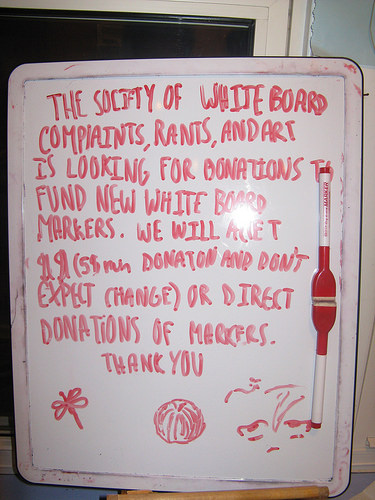 THE SOCITY OF WHITE BOARD
COMPLAINTS, RANTS, AND ART
IS LOOKING FOR DONATIONS TO
FUND NEW WHITE BOARD
MARKERS. WE WILL
(5$ min DONATON AND DON'T
EXPECT CHANGE) OR DIRECT
DONATIONS OF MARKERS.
THANK YOU
MARKER